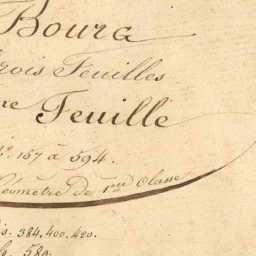 Bourg
rois Feuilles
me Feuille
No. 157 à 594.
Géomètre de 1ere Classe
is. 384.400.420.
580.